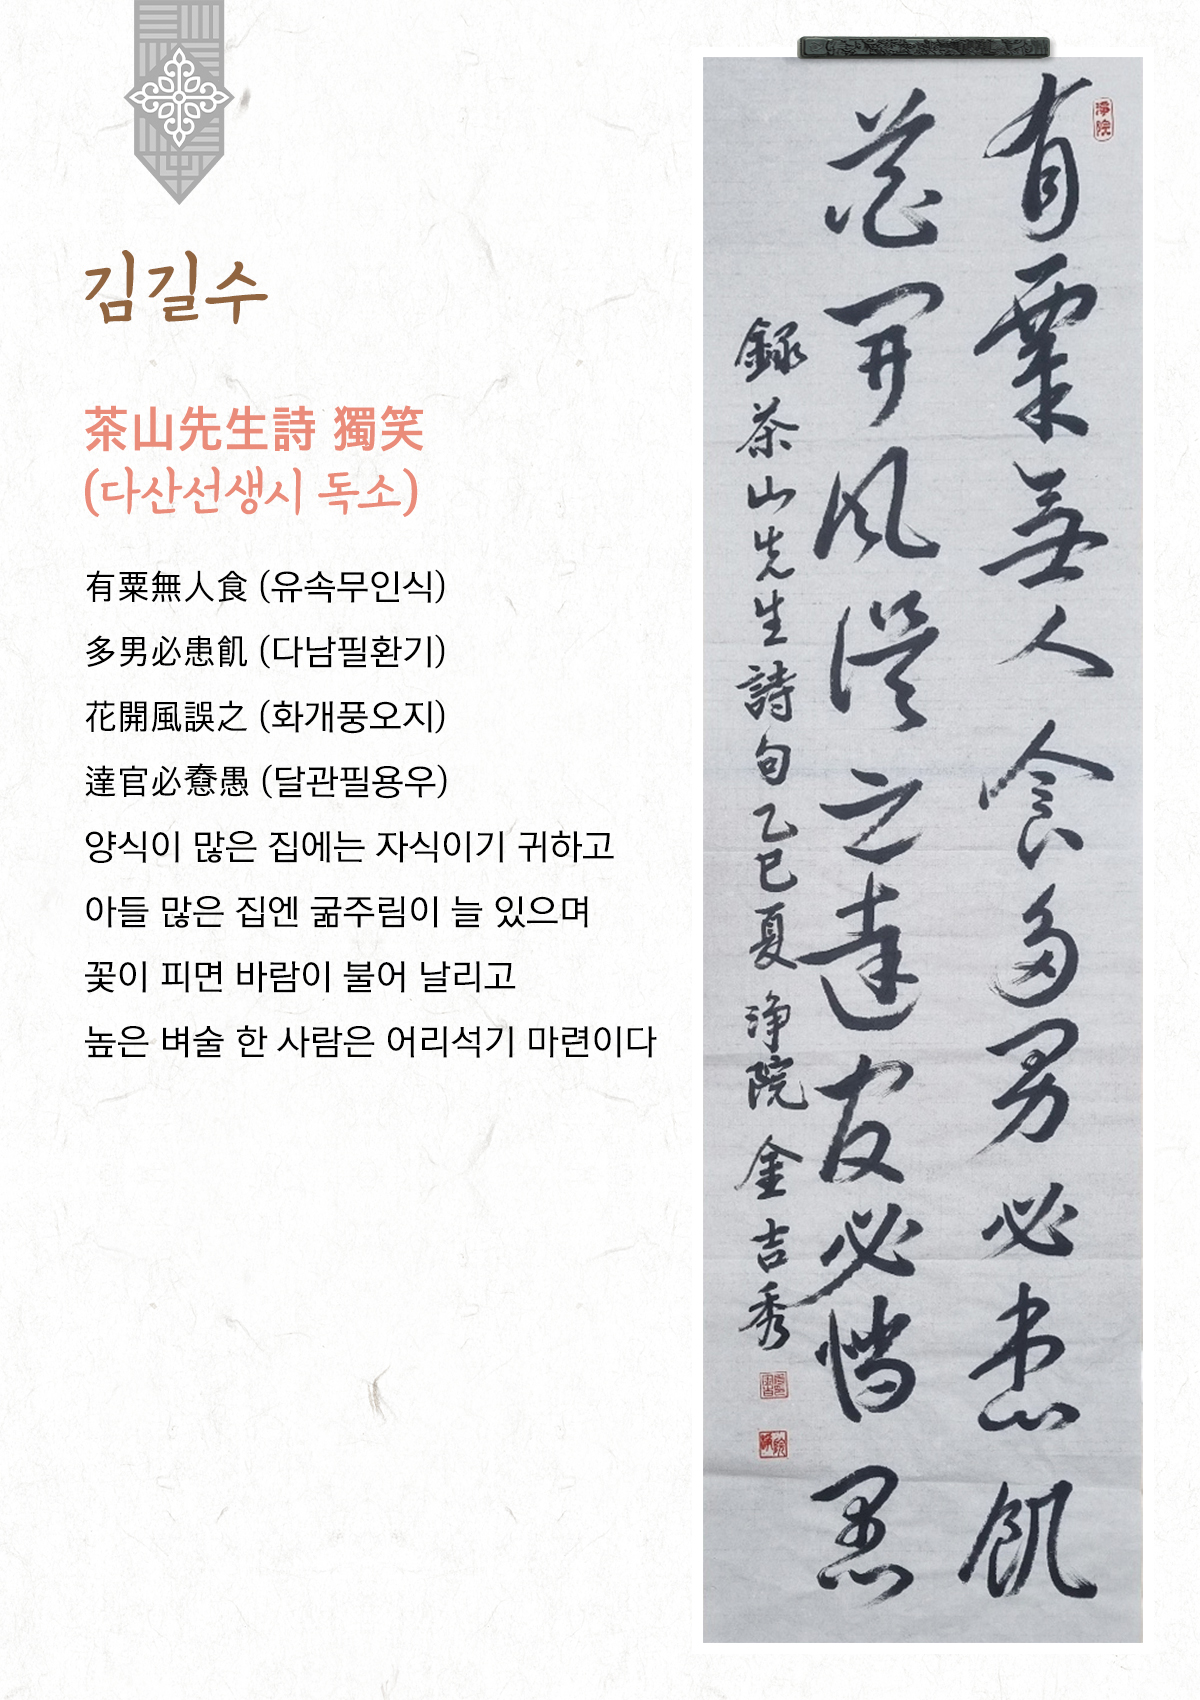 김길수
茶山先生詩 獨笑
(다산선생시 독소)
有粟無人食 (유속무인식)
多男必患飢 (다남필환기)
花開風誤之 (화개풍오지)
達官必憃愚 (달관필용우)
양식이 많은 집에는 자식이기 귀하고
아들 많은 집엔 굶주림이 늘 있으며
꽃이 피면 바람이 불어 날리고
높은 벼술 한 사람은 어리석기 마련이다
淨院
有粟無人食多男必患飢
花開風誤之達官必愚
錄茶山先生詩句乙巳夏 淨院 金吉秀